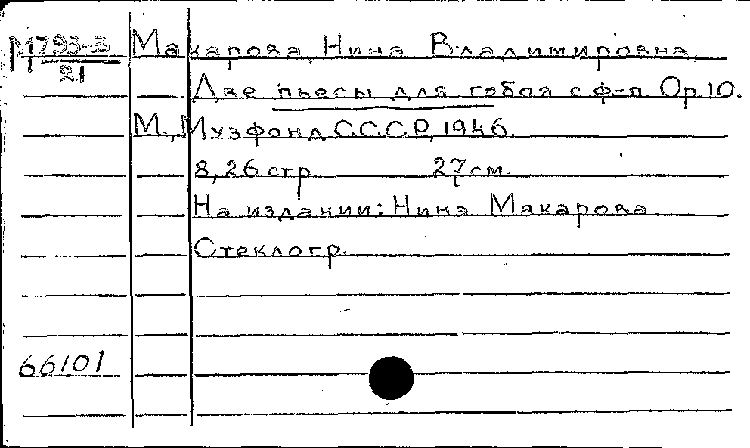 М 793-3/21 Макарова, Нина Владимировна
Две пьесы для гобоя с ф-п. Op.10.
М., Музфонд С.С.С.Р, 1946.
8, 26 стр. 27 см.
На издании: Нина Макарова.
Стеклогр.
66101